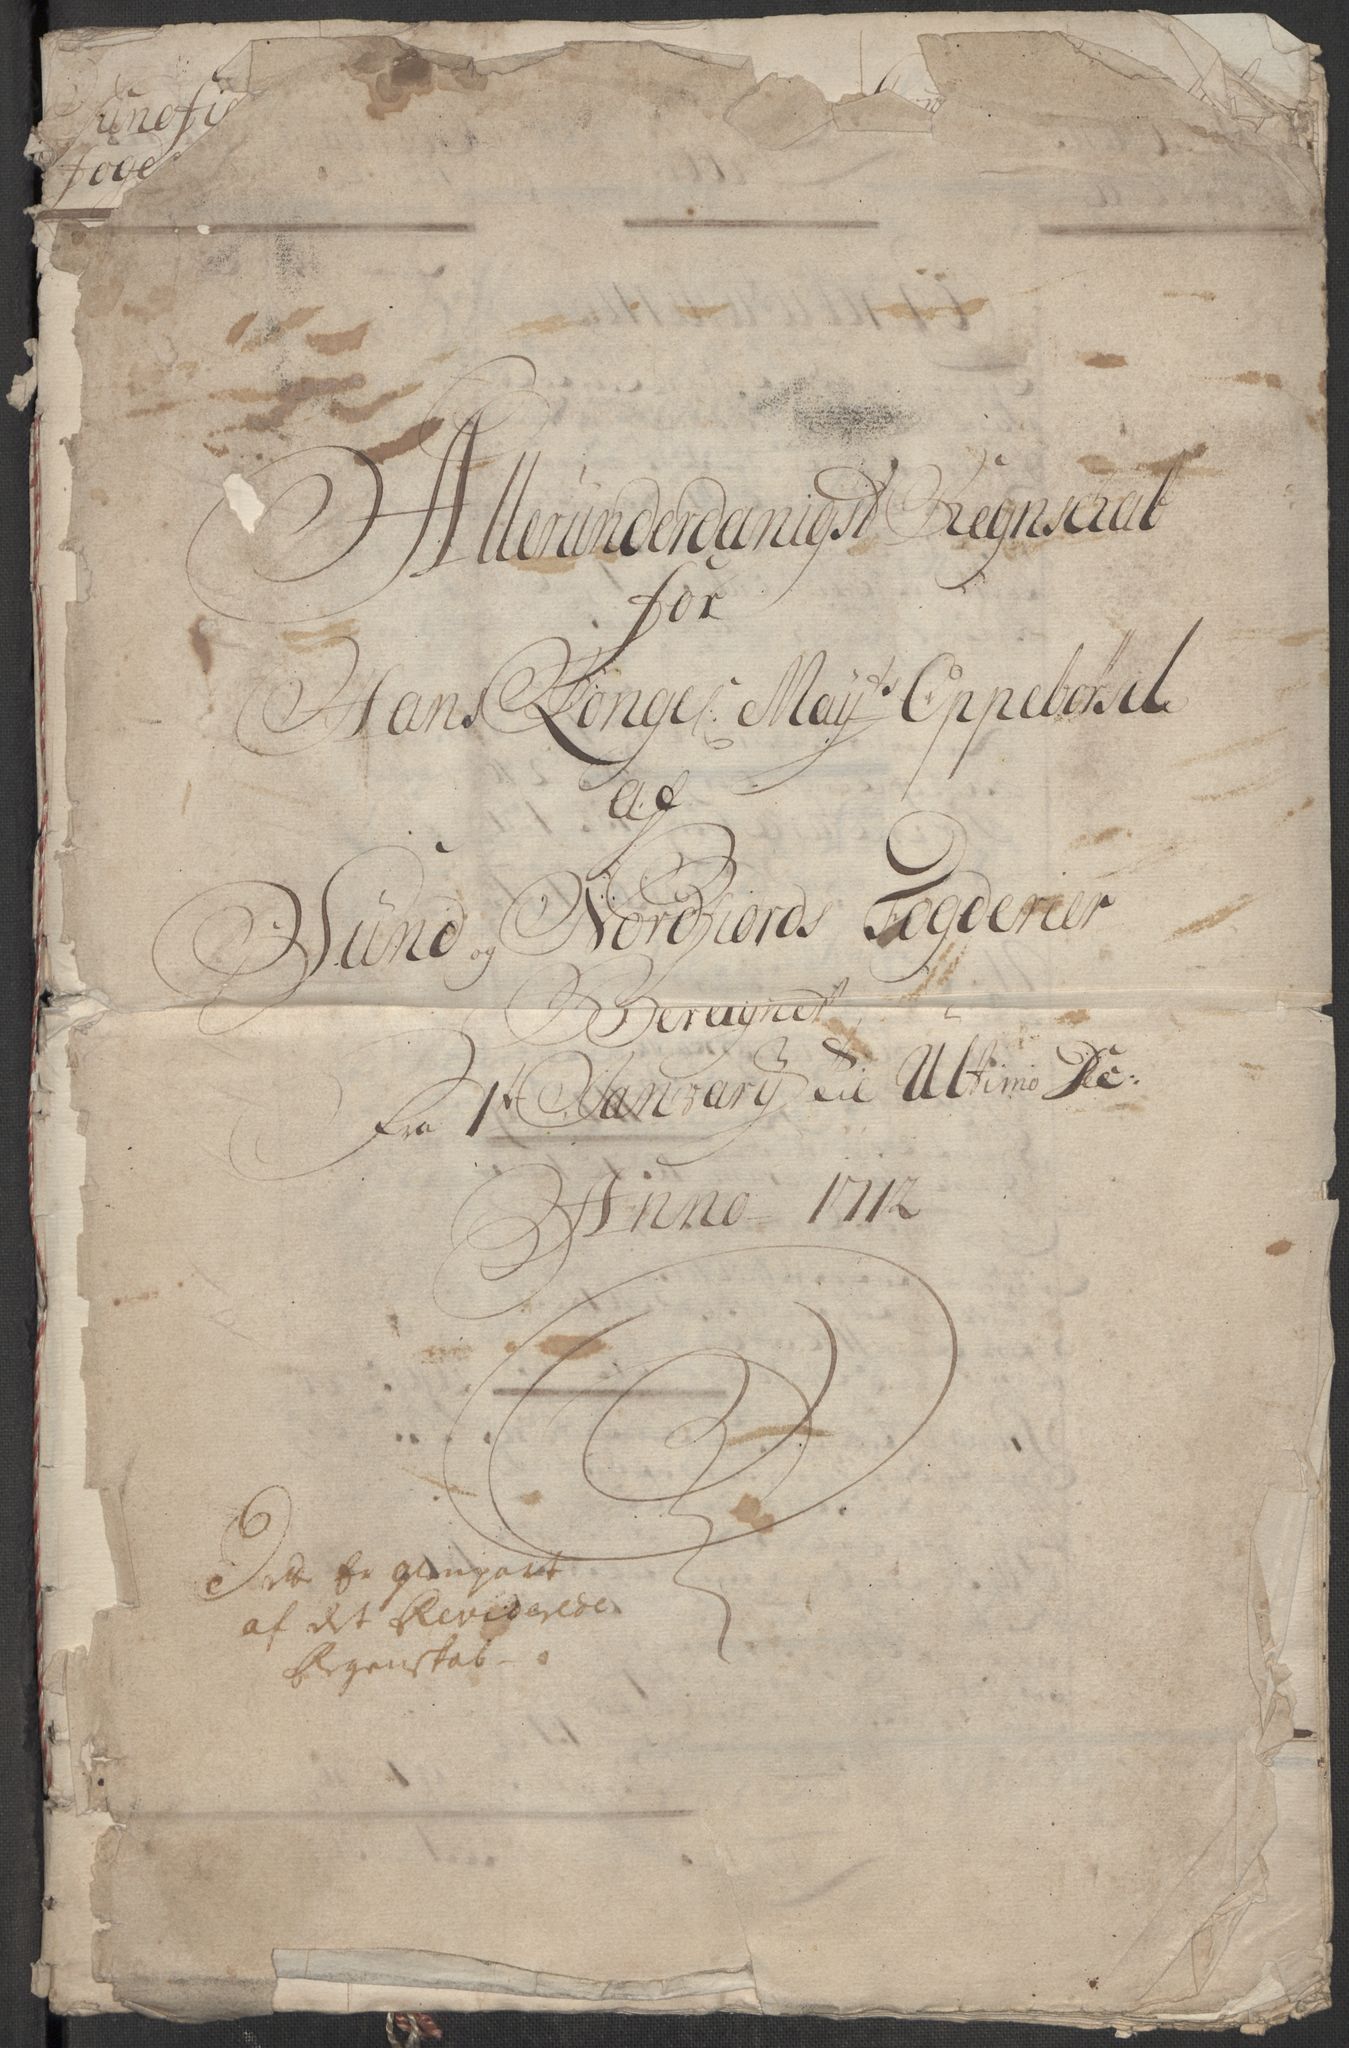 Sundfi
foge
Allerunderdanigst Regnschab
for
Hans Konge: May:ts Oppebørsel
af
Sund og Nordfiords Fogderier
Bereignet
Fra 1t January til Ultimo Dec:
Anno 1712
Dette Er genpart
af det Reviderede
Regenskab